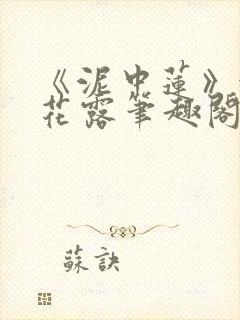 《泥中蓮》
花露筆趣閣
蘇訣